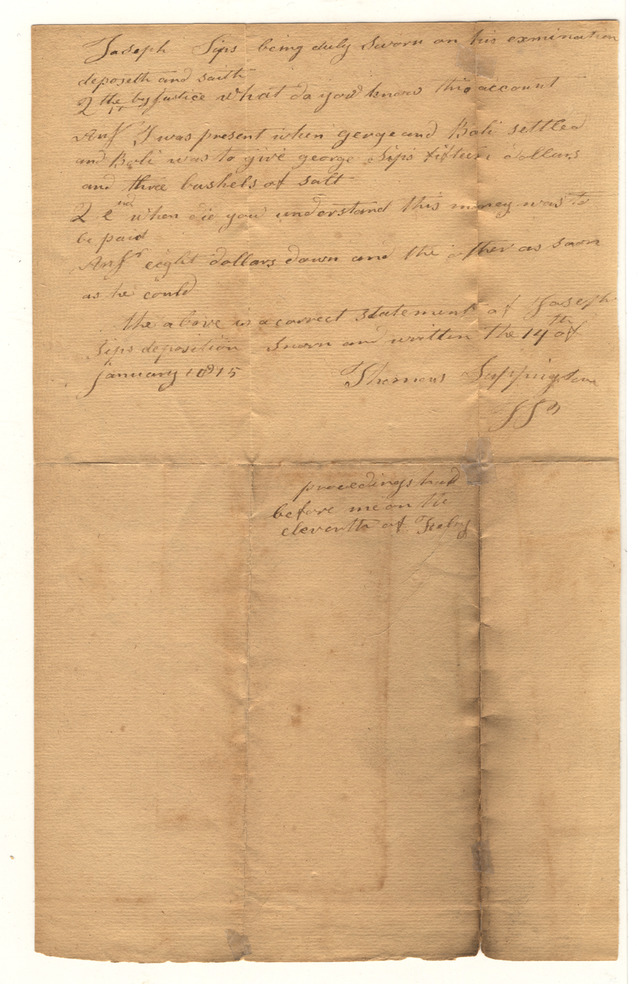 Joseph Sips being duly Sworn on his examination
deposeth and saith
Q the 1st by Justice what do you know this account
Ansr I was present when george and Bali settled
and Bali was to give george Sips fifteen dollars
and three bushels of salt
Q 2nd when did you understand this money was to
be paid
Ansr eight dollars down and the other as soon
as he could
the above is a correct statement of Joseph
Sips deposition Sworn and written the 14th of
January 1815
Thomas Sappington
proceedings had
before me on the
eleventh of Feby